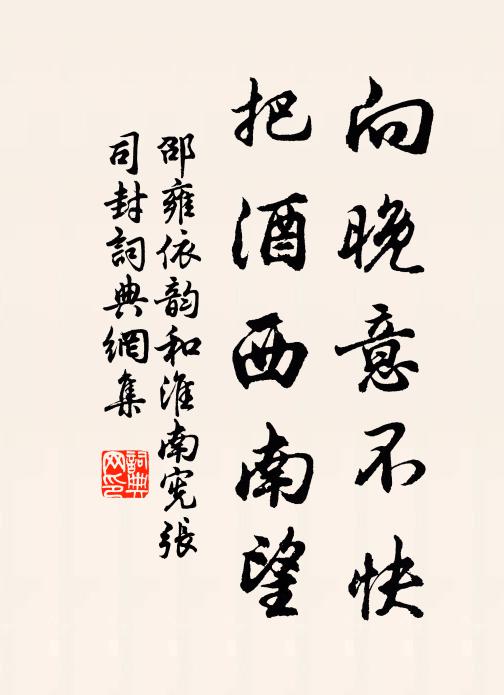 向晚意不快
把酒西南望
邵雍依韵和淮南宪張
司封詞典網集
詞典
网印